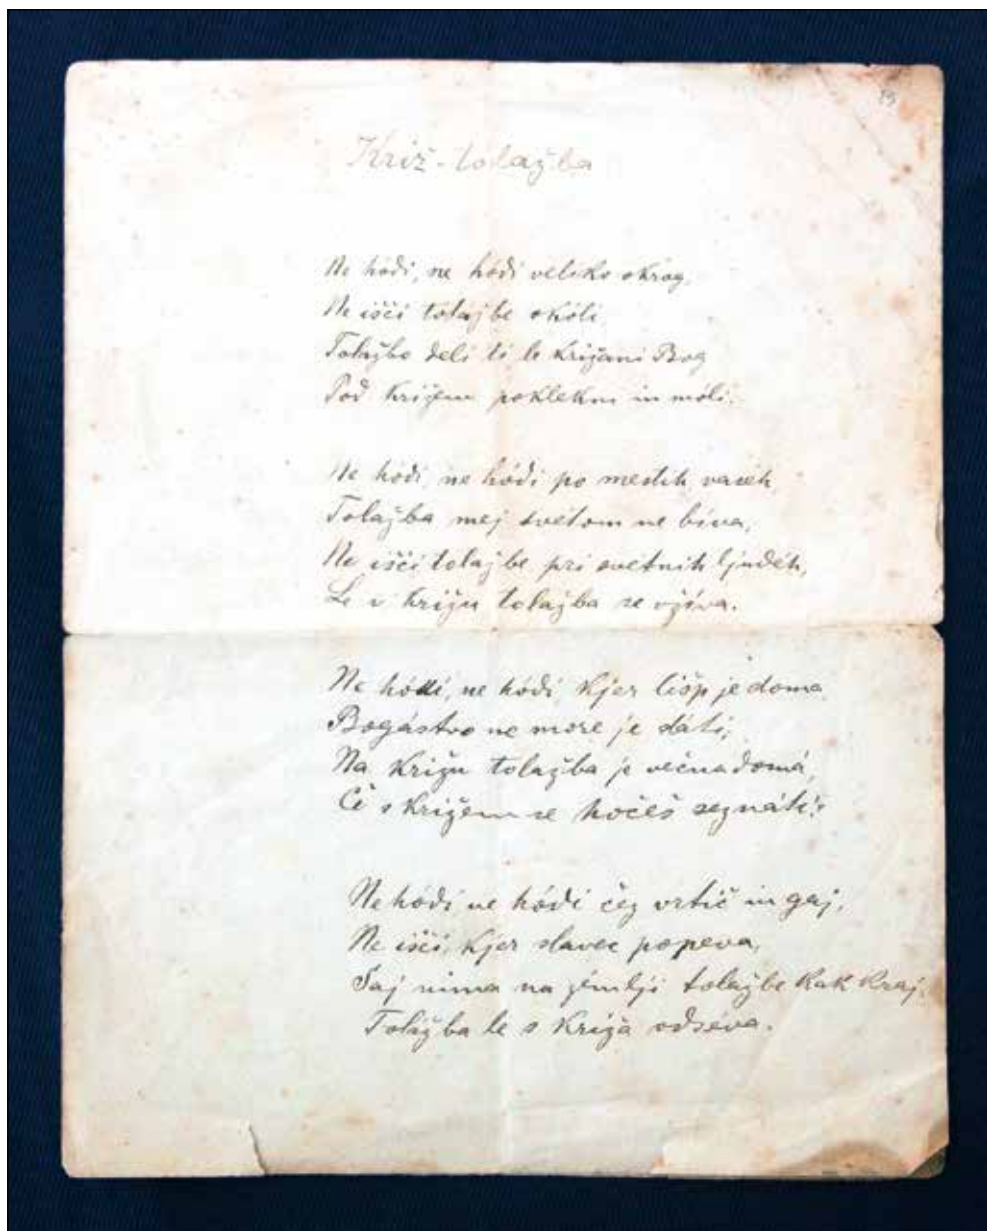 Križ-tolažba
Ne hódi, ne hódi veliko okrog,
Ne išči tolažbe okóli,
Tolažbo deli ti le križani Bog
Pod križem poklekni in móli.
Ne hódi, ne hódi po mestih, vaséh,
Tolažba mej svétom ne biva,
Ne išči tolažbe pri svétnih ljudéh,
Le v križu tolažba se vživa.
Ne hódi, ne hódi, kjer lišp je doma
Bogástvo ne more je dáti,
Na križu tolažba je večna domá,
Če s križem se hočeš seznáti!
Ne hódi, ne hódi čez vrtič in gaj,
Ne išči, kjer slavec popeva,
Saj nima na zémlji tolažbe kak kraj,
Tolažba le s križa odséva.